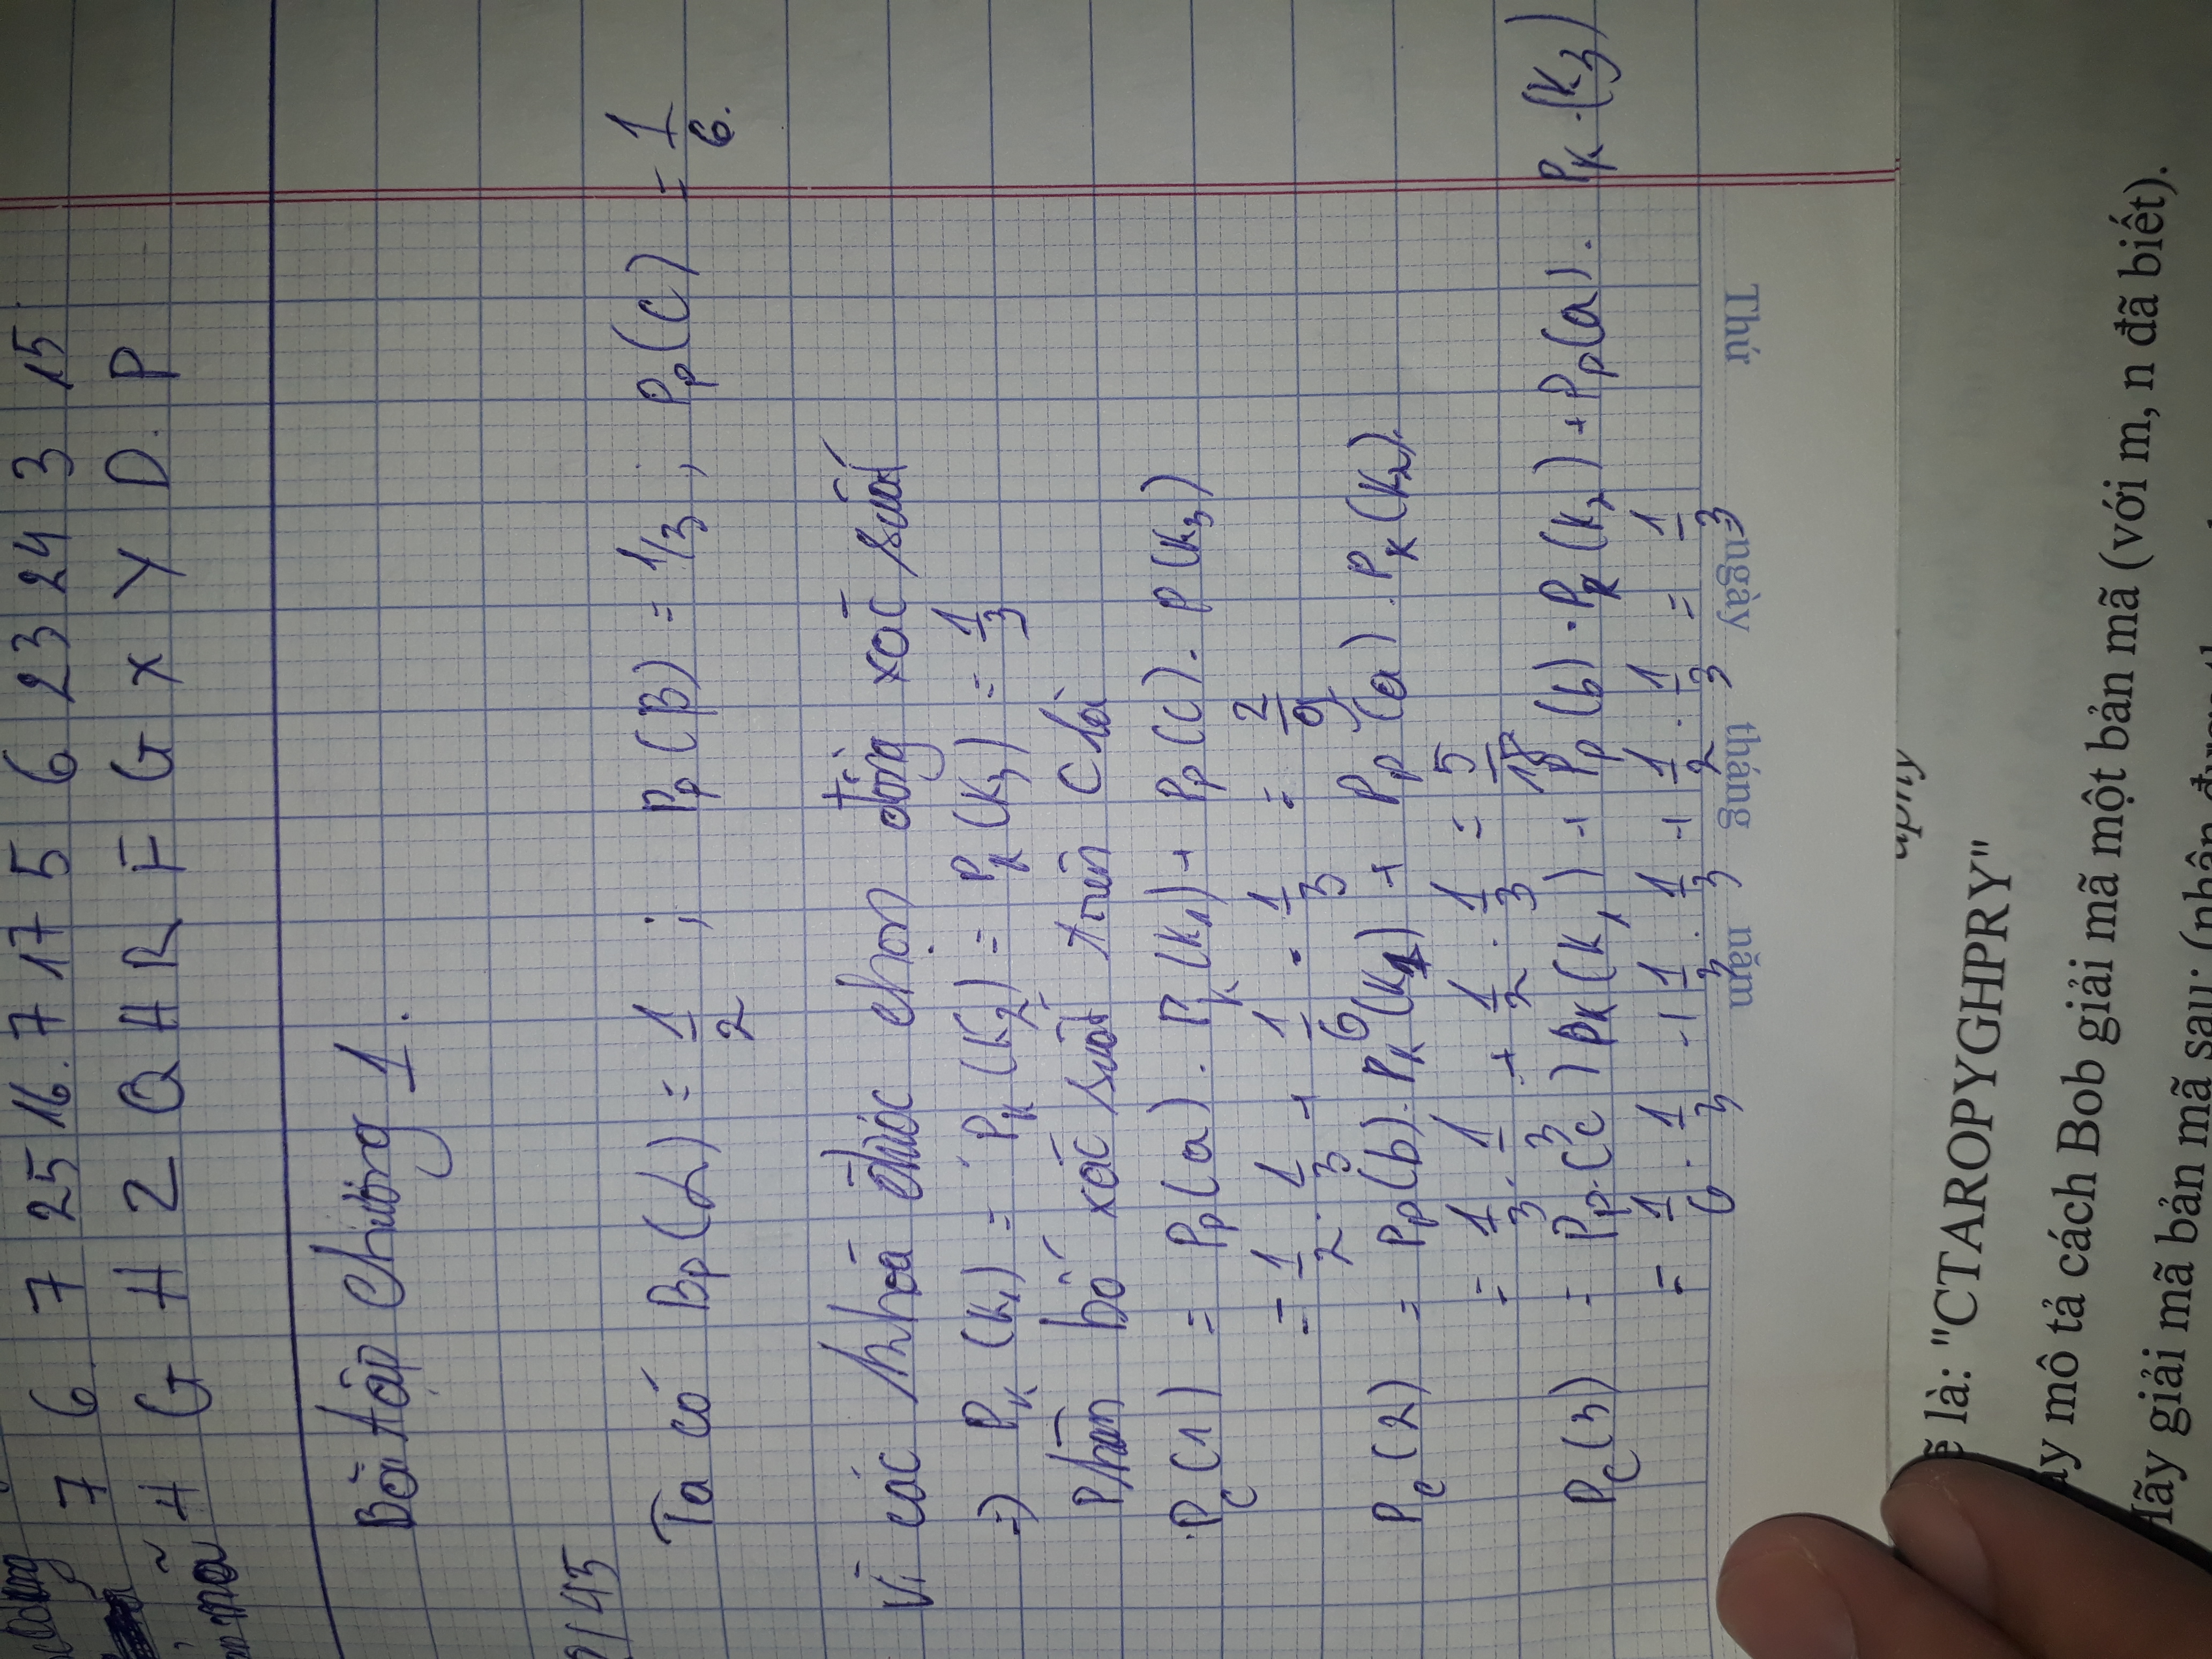 7 6. 7 25 16. 7 17 5 6 23 24 3 15
mã H G H Z Q H R F G X Y D. P
Bài tập chương 1.
/45
Ta có Bp(α) = 1/2 ; Pp(B) = 1/3 ; Pp(C) = 1/6.
Vì các khoá được chọn đồng xác suất
=> PK(K1) = PK(K2) = PK(K3) = 1/3
Phân bố xác suất trên C là
PC(1) = Pp(a). PK(K1) + Pp(c). P(K3)
= 1/2 . 1/3 + 1/6 . 1/3 = 2/9
PC(2) = Pp(b). PK(K1) + Pp(a). PK(K2).
= 1/3 . 1/3 + 1/2 . 1/3 = 5/18
PC(3) = Pp.(c) PK(K1) + Pp(b). PK(K2) + Pp(a). PK.(K3)
= 1/6 . 1/3 + 1/3 . 1/3 + 1/2 . 1/3 = 1/3
Thứ ngày tháng năm
aphy
ẽ là: "CTAROPYGHPRY"
ãy mô tả cách Bob giải mã một bản mã (với m, n đã biết).
Hãy giải mã bản mã sau: (nhận được